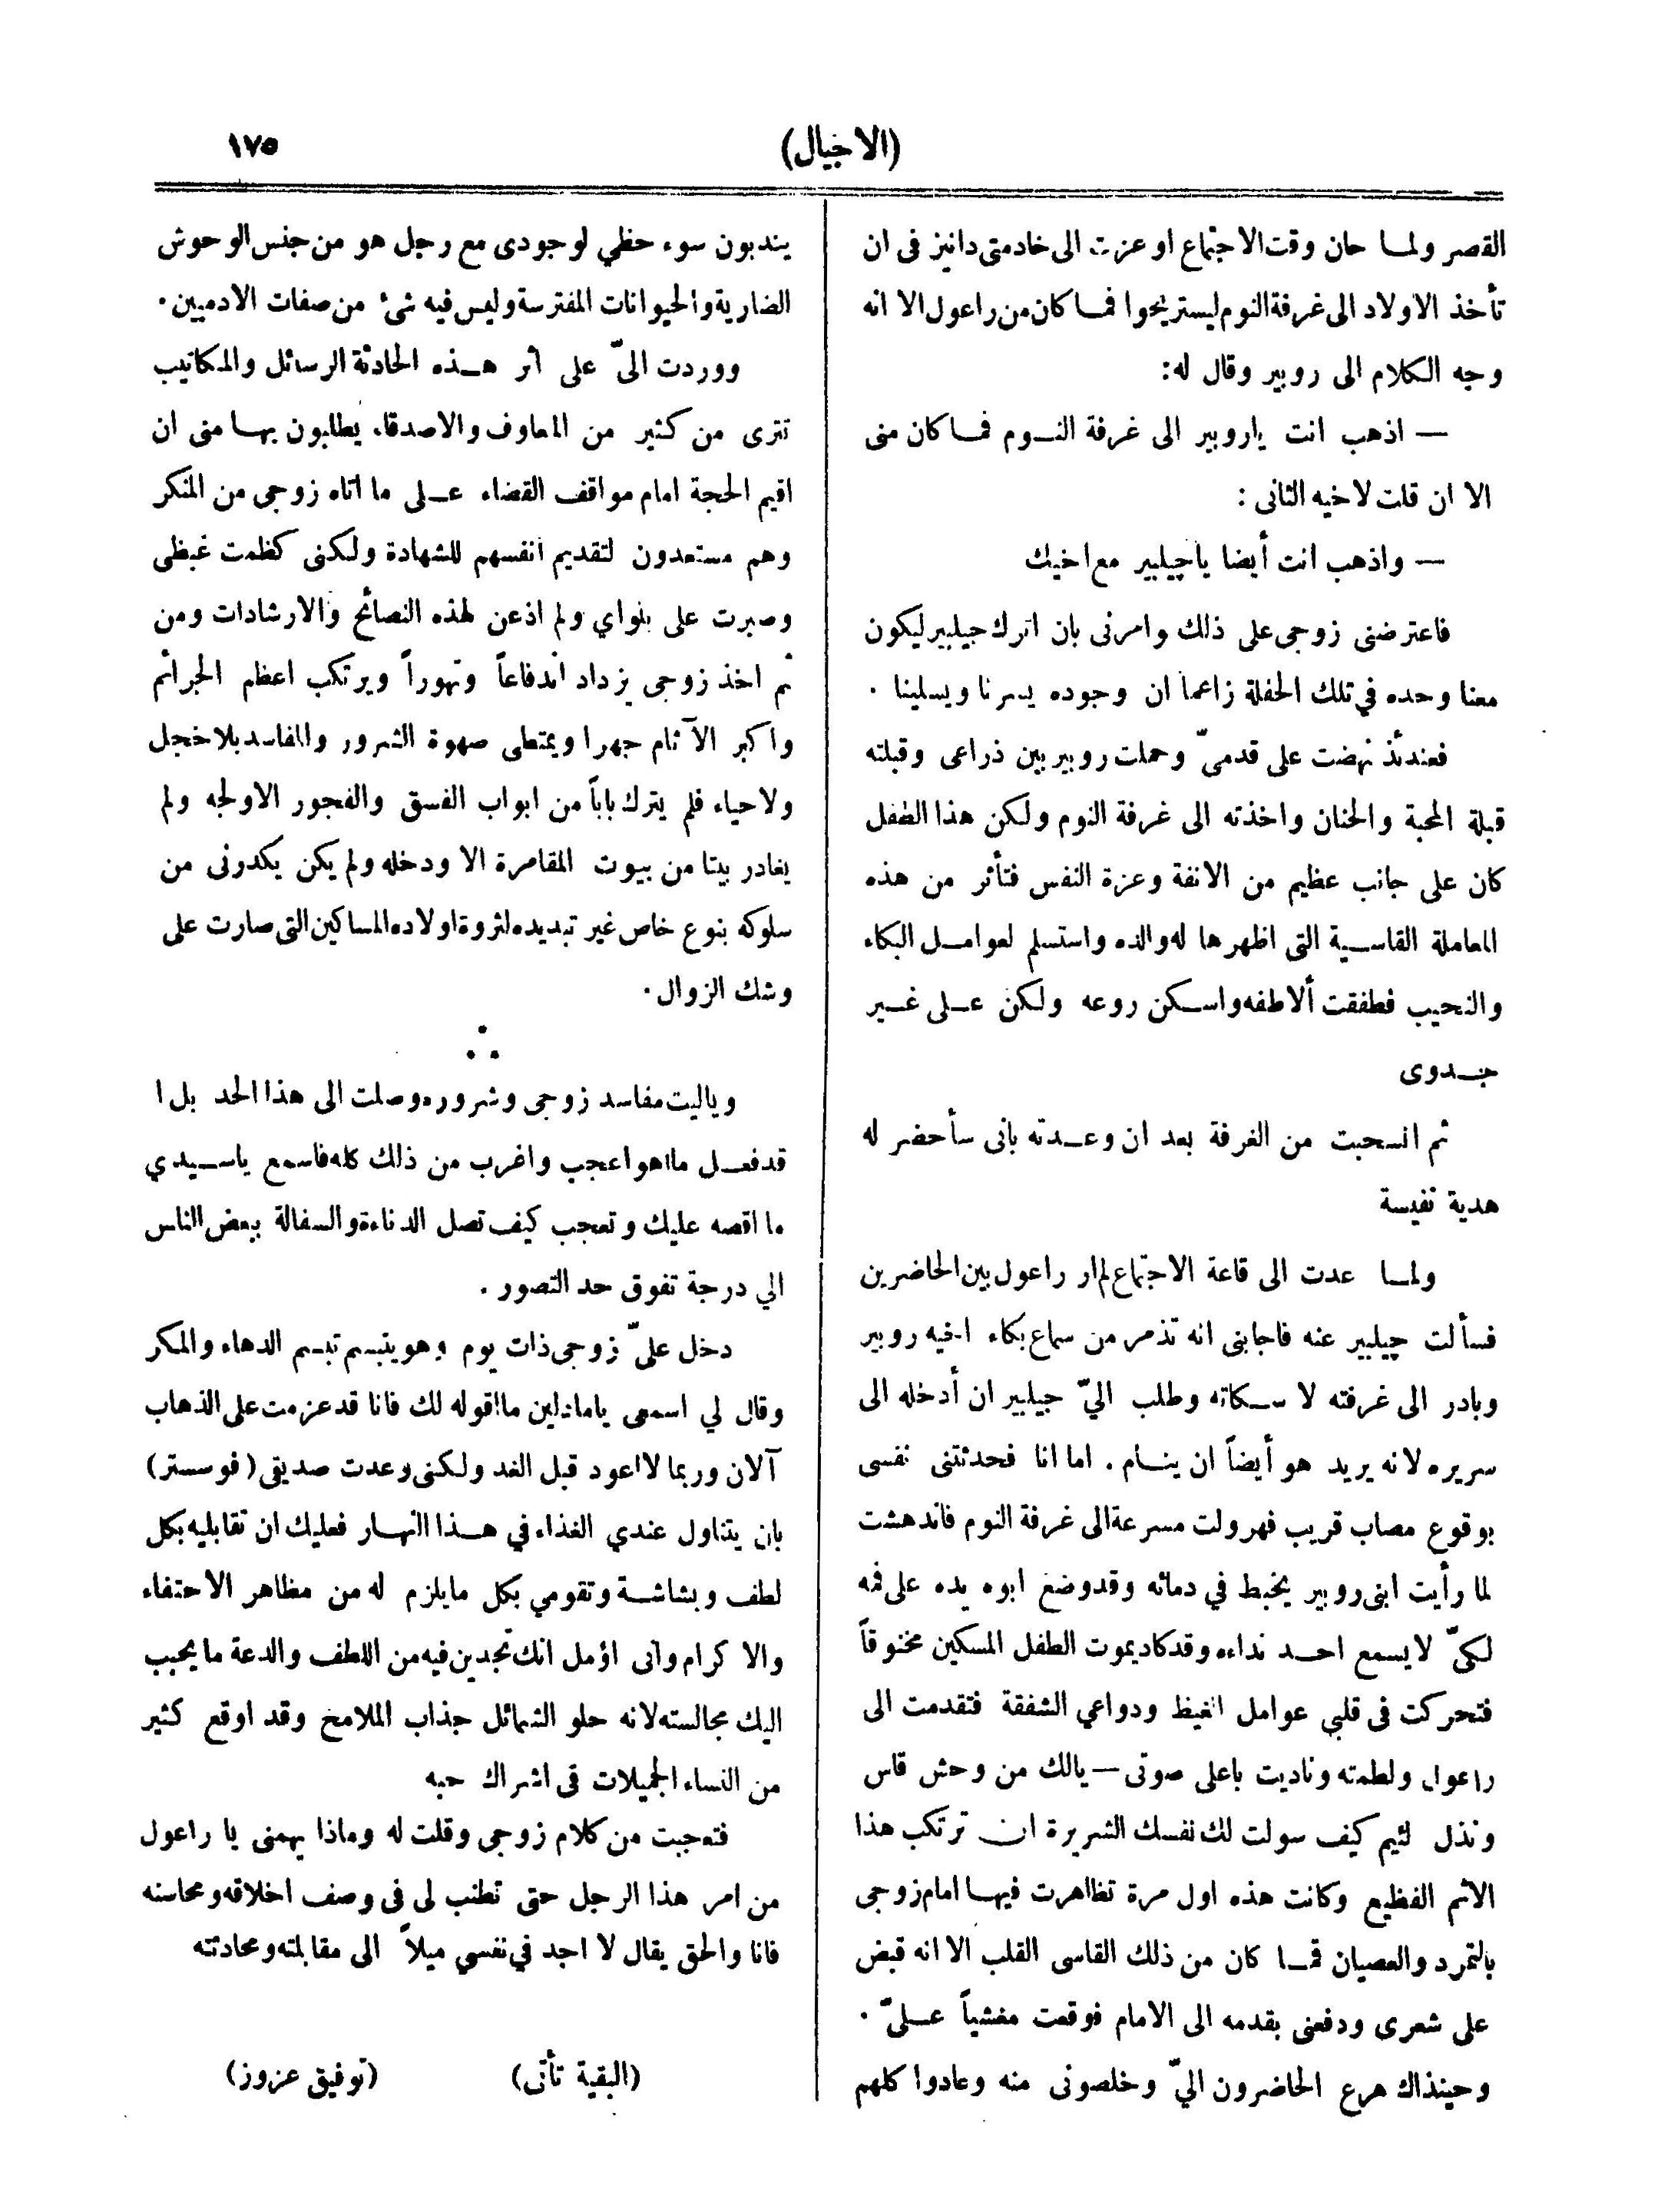 (الاجيال)
١٧٥
القصر ولما حان وقت الاجتماع اوعزت الى خادمتى دانيز فى ان
تأخذ الاولاد الى غرفة النوم ليستريحوا فما كان من راعول الا انه
وجه الكلام الى روبير وقال له:
— اذهب انت ياروبير الى غرفة النوم فما كان منى
الا ان قلت لاخيه الثانى :
— واذهب انت أيضا ياجيلبير مع اخيك
فاعترضنى زوجى على ذلك وامرنى بان اترك جيلبير ليكون
معنا وحده في تلك الحفلة زاعما ان وجوده يسرنا ويسلينا .
فعندئذ نهضت على قدمىّ وحملت روبير بين ذراعى وقبلته
قبلة المحبة والحنان واخذته الى غرفة النوم ولكن هذا الطفل
كان على جانب عظيم من الانفة وعزة النفس فتأثر من هذه
المعاملة القاسية التى اظهرها له والده واستسلم لعوامل البكاء
والنحيب فطفقت ألاطفه واسكن روعه ولكن على غير
جدوى
ثم انسحبت من الغرفة بعد ان وعدته بانى سأحضر له
هدية نفيسة
ولما عدت الى قاعة الاجتماع لم ار راعول بين الحاضرين
فسألت جيلبير عنه فاجابنى انه تذمر من سماع بكاء اخيه روبير
وبادر الى غرفته لا سكاته وطلب اليّ جيلبير ان أدخله الى
سريره لانه يريد هو أيضاً ان ينام . اما انا فحدثتنى نفسى
بوقوع مصاب قريب فهرولت مسرعة الى غرفة النوم فاندهشت
لما رأيت ابنى روبير يخبط في دمائه وقد وضع ابوه يده على فمه
لكىّ لا يسمع احد نداءه وقد كاد يموت الطفل المسكين مخنوقاً
فتحركت فى قلبي عوامل الغيظ ودواعي الشفقة فتقدمت الى
راعول ولطمته وناديت باعلى صوتى — يالك من وحش قاس
ونذل لئيم كيف سولت لك نفسك الشريرة ان ترتكب هذا
الاثم الفظيع وكانت هذه اول مرة تظاهرت فيها امام زوجى
بالتمرد والعصيان فما كان من ذلك القاسى القلب الا انه قبض
على شعرى ودفعنى بقدمه الى الامام فوقعت مغشياً علىّ .
وحينذاك هرع الحاضرون اليّ وخلصونى منه وعادوا كلهم
يندبون سوء حظي لوجودى مع رجل هو من جنس الوحوش
الضارية والحيوانات المفترسة وليس فيه شئ من صفات الادميين .
ووردت الىّ على أثر هذه الحادثة الرسائل والمكاتيب
تترى من كثير من المعاوف والاصدقاء يطلبون بها منى ان
اقيم الحجة امام مواقف القضاء على ما اتاه زوجى من المنكر
وهم مستعدون لتقديم انفسهم للشهادة ولكنى كظمت غيظى
وصبرت على بلواي ولم اذعن لهذه النصائح والارشادات ومن
ثم اخذ زوجى يزداد اندفاعاً وتهوراً ويرتكب اعظم الجرائم
واكبر الآثام جهرا ويمتطى صهوة الشرور والمفاسد بلا خجل
ولا حياء فلم يترك باباً من ابواب الفسق والفجور الا ولجه ولم
يغادر بيتا من بيوت المقامرة الا ودخله ولم يكن يكدرنى من
سلوكه بنوع خاص غير تبديده لثروة اولاده المساكين التى صارت على
وشك الزوال .
∴
وياليت مفاسد زوجى وشروره وصلت الى هذا الحد بل ا
قد فعل ما اهو اعجب واغرب من ذلك كله فاسمع ياسيدي
ما اقصه عليك وتعجب كيف تصل الدناءة والسفالة ببعض الناس
الي درجة تفوق حد التصور .
دخل علىّ زوجى ذات يوم وهو يتبسم تبسم الدهاء والمكر
وقال لي اسمعى يامادلين ما اقوله لك فانا قد عزمت على الذهاب
آلان وربما لا اعود قبل الغد ولكنى وعدت صديقى (فوسستر)
بان يتناول عندي الغذاء في هذا النهار فعليك ان تقابليه بكل
لطف وبشاشة وتقومي بكل مايلزم له من مظاهر الاحتفاء
والاكرام وانى اؤمل انك تجدين فيه من اللطف والدعة ما يحبب
اليك مجالسته لانه حلو الشمائل جذاب الملامح وقد اوقع كثير
من النساء الجميلات فى اشراك حبه
فتعجبت من كلام زوجى وقلت له وماذا يهمنى يا راعول
من امر هذا الرجل حتى تطنب لى فى وصف اخلاقه ومحاسنه
فانا والحق يقال لا اجد في نفسي ميلاً الى مقابلته ومحادثته
(البقية تأتى)
(توفيق عزوز)